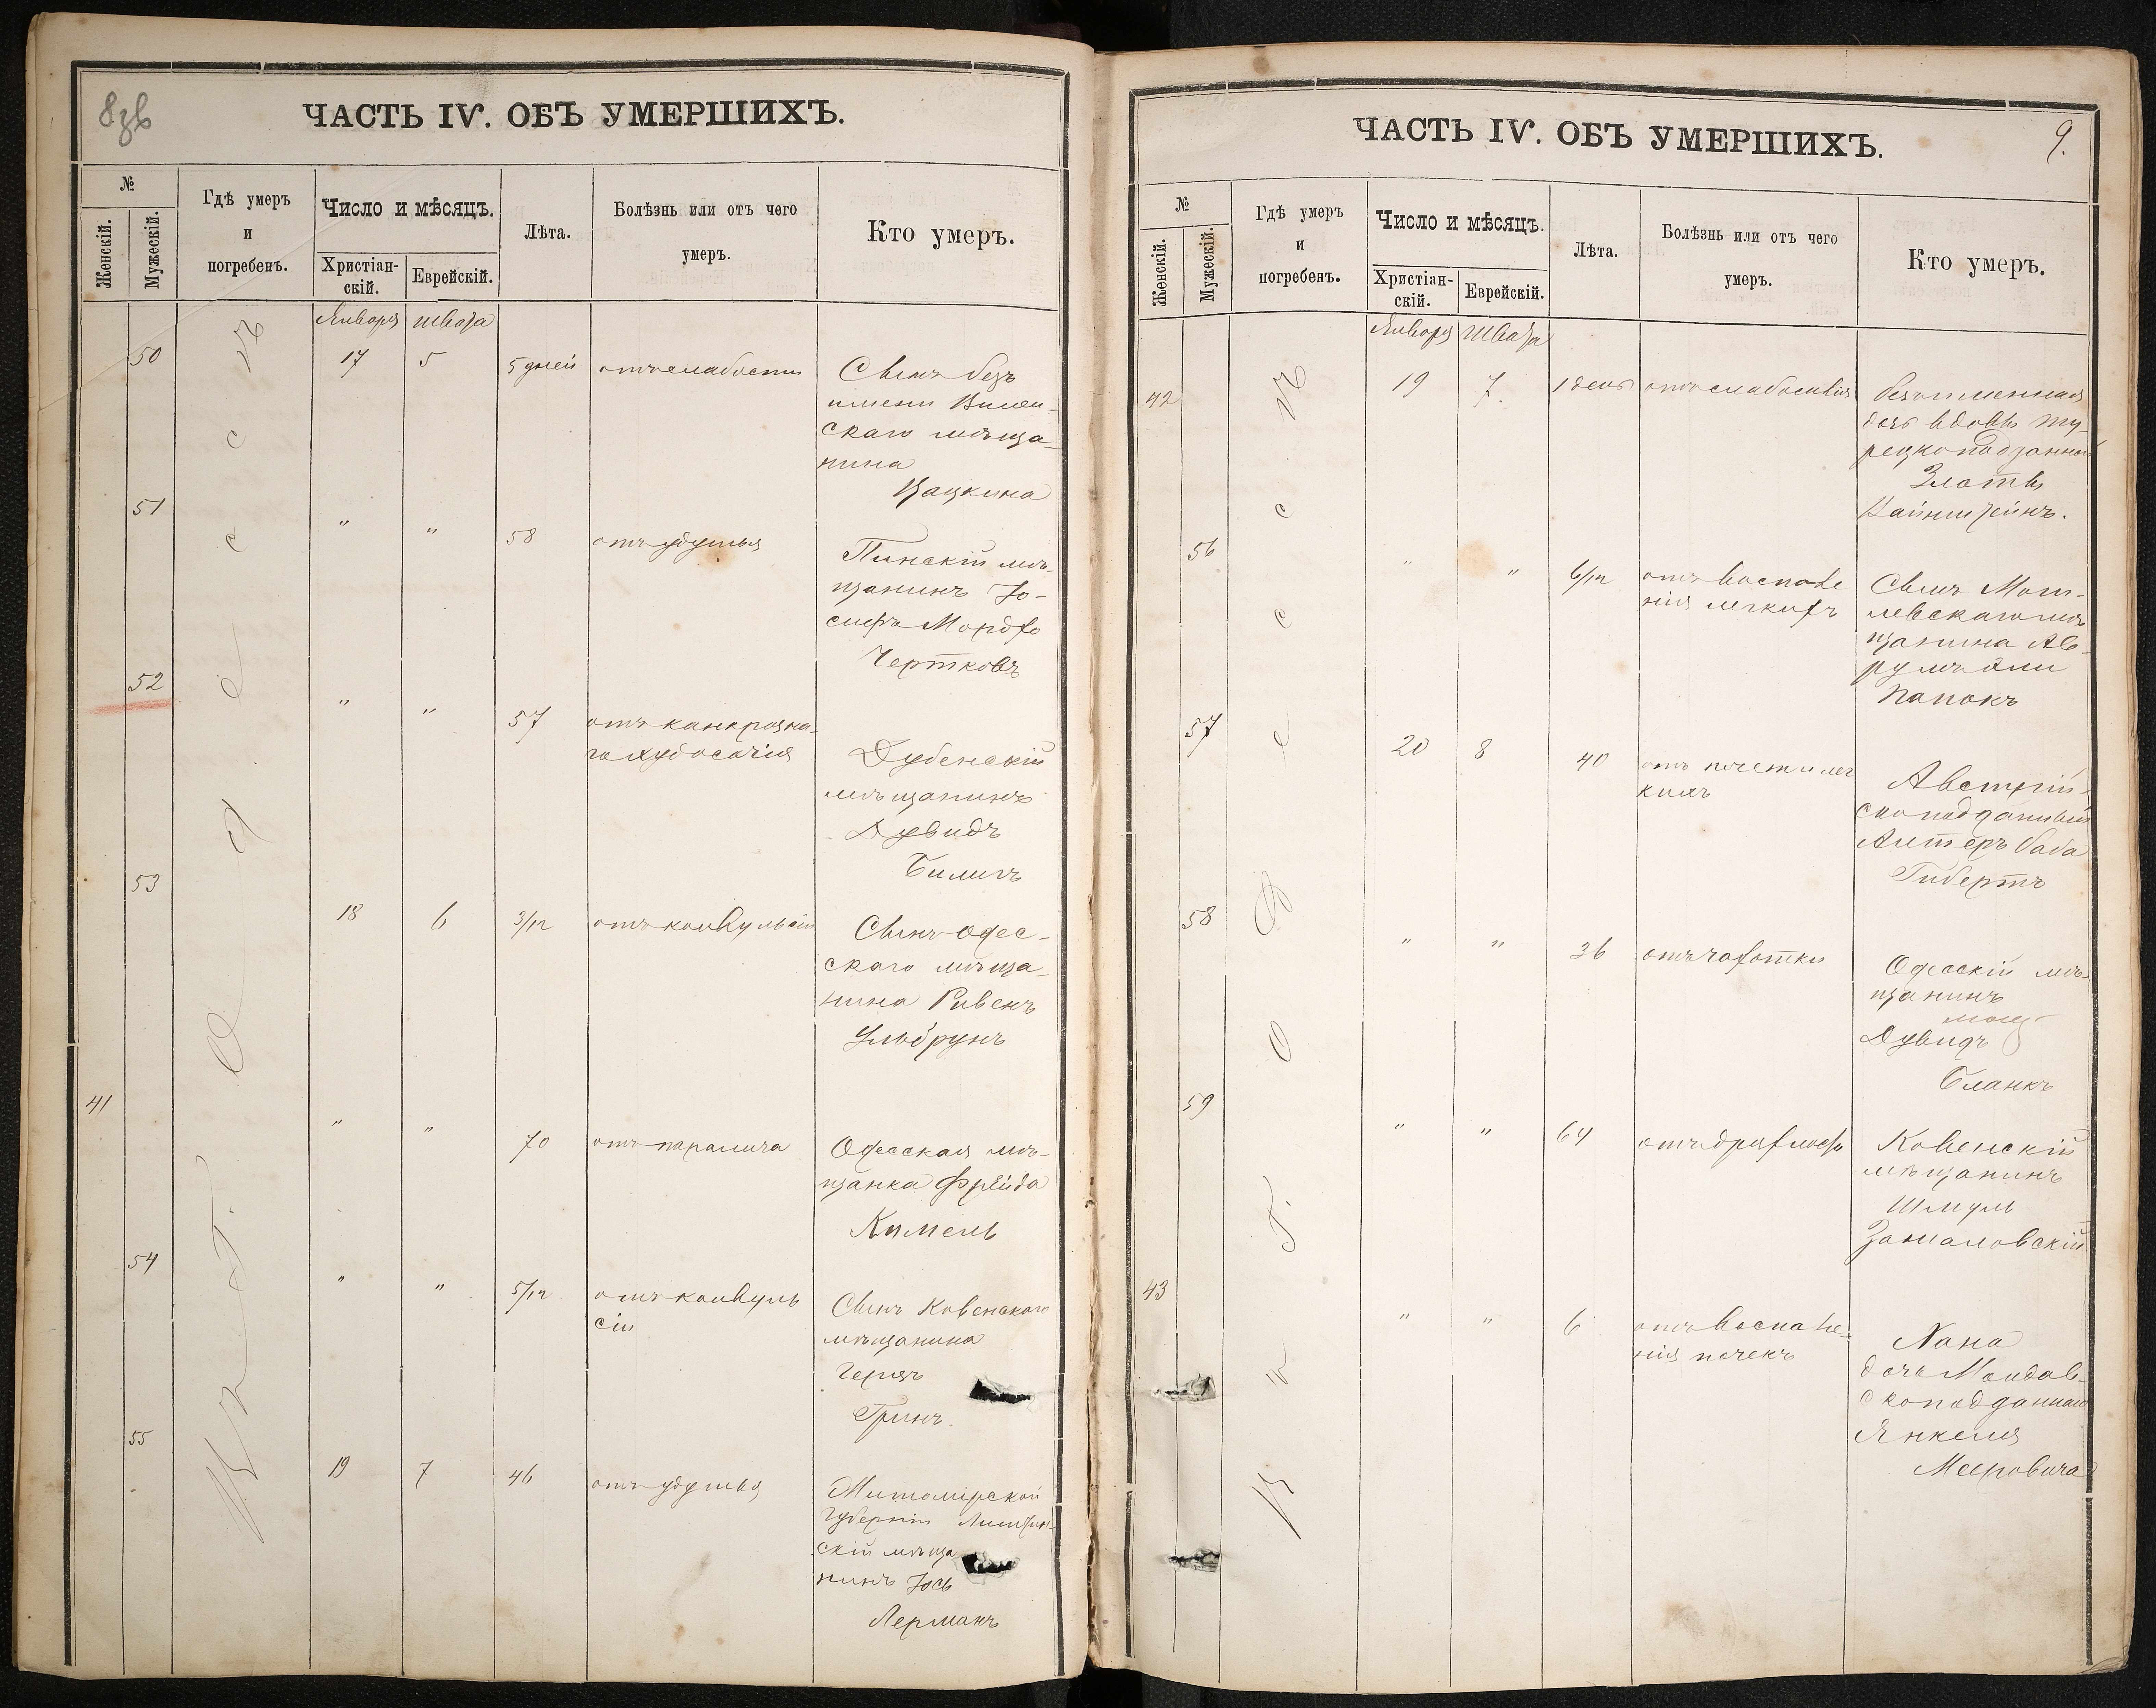 8зв
ЧАСТЬ IV. ОБЪ УМЕРШИХЪ.
№
Женскій.
Мужескій.
Гдѣ умеръ
и
погребенъ.
Число и мѣсяцъ.
Христіан-
скій.
Еврейскій.
Лѣта.
Болѣзнь или отъ чего
умеръ.
Кто умеръ.
Января Швата
Въ г. Одессѣ
50 17 5 5 дней отъ слабости Сынъ безъ
имени Вилен-
скаго мѣща-
нина
Цацкина
51 " " 58 отъ удушья Пинскій мѣ-
щанинъ Іо-
сифъ Мордхо
Чертковъ
52 " " 57 отъ канкрозна-
го худосочія Дубенскій
мѣщанинъ
Дувидъ
Билигъ
53 18 6 3/12 отъ конвульсій Сынъ Одес-
скаго мѣща-
нина Рувенъ
Ульбрунъ
41 " " 70 отъ паралича Одесская мѣ-
щанка Фрейда
Кимель
54 " " 5/12 отъ конвуль
сій Сынъ Ковенскаго
мѣщанина
Герцъ
Гринъ
55 19 7 46 отъ удушья Житомірской
Губерніи
скій мѣща
нинъ Іось
Лерманъ
9.
ЧАСТЬ IV. ОБЪ УМЕРШИХЪ.
№
Женскій.
Мужескій.
Гдѣ умеръ
и
погребенъ.
Число и мѣсяцъ.
Христіан-
скій.
Еврейскій.
Лѣта.
Болѣзнь или отъ чего
умеръ.
Кто умеръ.
Января Швата
Въ г. Одессѣ
42 19 7. 1 день отъ слабосилія безъименная
дочь вдовы ту-
рецкоподданной
Златы
Вайнштейнъ.
56 " " 6/12 отъ воспале
нія легкихъ Сынъ Моги-
левскаго мѣ
щанина Ав-
румъ Эли
Папокъ
57 20 8 40 отъ легкихъ Австрій-
скоподданный
Алтеръ Баба
Гибертъ
58 " " 36 отъ чахотки Одесскій мѣ-
щанинъ
Дувидъ
Бланкъ
59 " " 64 отъ дряхлости Ковенскій
мѣщанинъ
Шмуль
43 " " 6 отъ воспале-
нія почекъ Хана
дочь Молдав-
скоподданнаго
Янкеля
Мееровича